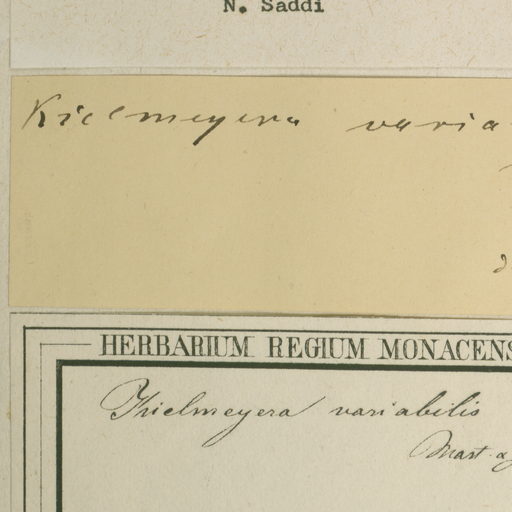 N. Saddi
Kielmeyera varia
HERBARIUM REGIUM MONACENS
Kielmeyera variabilis
Mart.